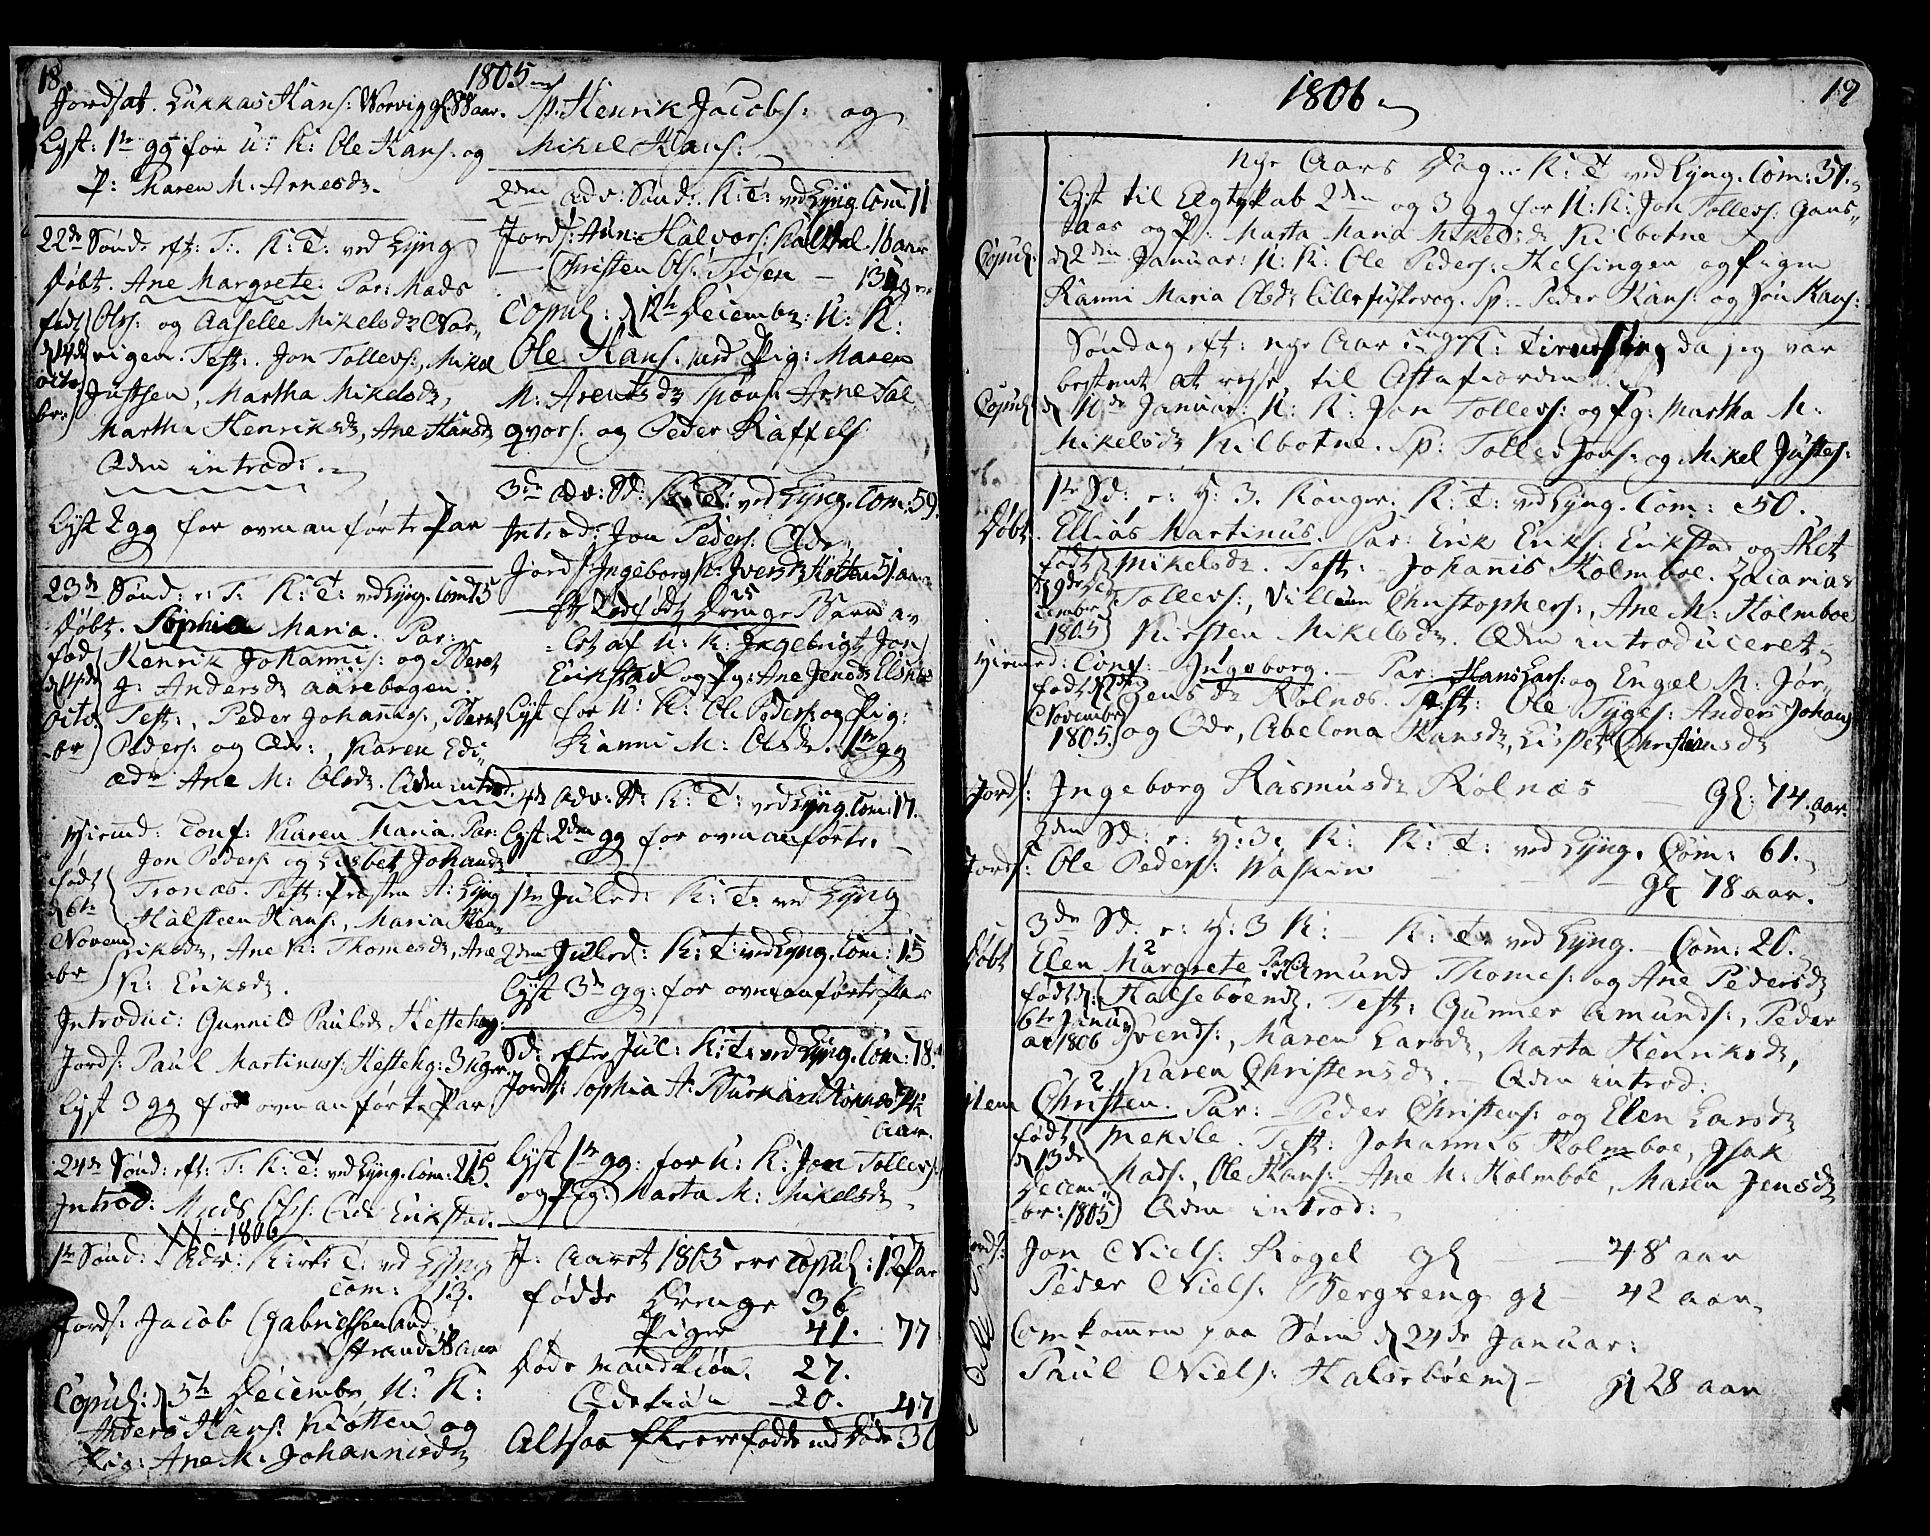 18
1805
Jordsat. Lukkas Hans: Worvig gl. 88 aar.
Lyst: 1te gg for U: K: Ole Hans: og
P: Maren M. Arnesdr.
22de Sønd: eft: T: K: T: ved Lyng
Døbt. Ane Margrete. Par: Mads
Ols: og Aaselle Mikelsdr Nor-
vigen. Test: Jon Tollevs:, Mikel
Justsen, Martha Mikelsdr,
Martha Henriksdr, Ane Hansdr
Qdm introd:
født
d 14de
octo-
br:
Lyst 2 gg for ovenanførte Par
23de Sønd: e: T: K: T: ved Lyng. Com: 75
Døbt. Sophia Maria. Par:
Henrik Johannis: og Beret
J: Andersdr Aarebogen.
Test:, Peder Johannis:, Bernt
Peders: og Qdr:, Karen Edi-
ædr Ane M: Olsdr. Qdm introd.
født
octo
br
Hiemd: Conf: Karen Maria. Par:
Jon Peders: og Lisbet Johansdr
Tronæs. Test: Præsten H: Lyng
Halsteen Hans:, Maria Hen-
riksdr, Ane K: Thomesdr, Ane
K: Eriksdr.
født
d 6te
Novem
br
Introduc: Gunnild Paulsdr Hestehag:
Jords: Paul Martinus: Hestehg: 3 uger
Lyst 3 gg for ovenanførte Par
24de Sønd: eft: T: K: T: ved Lyng. Com: 25.
Introd: Mads Ols: Qde Erikstad.
1806
1te Sønd: i Adv: Kirke T: ved Lyng
Com: 13.
Jords: Jacob Gabriels
Strand
Copul: d 5te December U: K:
Anders Hans: Kiøtten og
Pig: Ane M. Johannesdr
Sp: Henrik Jacobs: og
Mikel Hans:
2den Adv: Sønd: K: T: ved Lyng. Com: 11
Jords: Aun: Halvors: 16 aar
— Christen Ols: Trøsen —
Copul: d 12te December U: K:
Ole Hans: med Pig: Maren
M: Arentsdr Spons: Arne Sal-
qvors: og Peder Raffels
3de Adv: Sd: K: T: ved Lyng. Com: 59.
Introd: Jon Peders: Qde
Jords: Ingeborg K: Iversdr Kotten 51 aar
Et dødfødt Drenge Barn av-
let af U: K: Ingebrigt Jon
Erikstad og Pg: Ane Jensdr Elsnæs
Lyst for U: K: Ole Peders: og Pig:
Hanni M: Olsdr. 1te gg
4de Adv: Sd: K: T: ved Lyng. Com: 17.
Lyst: 2den gg for ovenanførte.
1te Juled: K: T: ved Lyng
2den Juled: K: T: ved Lyng. Com: 15
Lyst 3de gg: for ovenanførte Par
Sd: efter Jul: K: T: ved Lyng. Com: 78.
Jords: Sophia H: 74
aar.
Lyst 1te gg: for U: K: Jon Tollevs:
og Pg: Marta M: Mikelsdr
I: Aaret 1805 ere Copul: 12 Par
fødde Drenge 36
Piger 41. 77
Døde Mandkiøn. 27.
Qdekiøn 20. 47
Altsaa fleere fødde end Døde: 30
1806
19
Nye Aars Dag.. K: T ved Lyng. Com: 51.
Lyst til Egteskab 2den og 3 gg for U: K: Jon Tollevs: Gans-
aas og P: Marta Maria Mikelsdr Kilbotne
Copul. d 2den Januar: U: K: Ole Peders: Helsingen og Pigen
Hanni Maria Olsdr Lillefuskevog. Sp: Peder Hans: og Jon Hans:
Søndag eft: nye Aar ingen K: tieneste, da jeg var
bestemt at reise til Astafiorden
Copul d 11de Januar: U: K: Jon Tollevs: og Pg: Martha M:
Mikelsdr Kilbotne. Sp: Tollev Jons: og Mikel Justes:
1te Sd: e: H: 3. Konger. K: T: ved Lyng. Com: 50.
Døbt. Ellias Martinus. Par: Erik Eriks: Erikstad og Malet
Mikelsdr. Test: Johanis Holmboe. Zacarias
Tollevs:, Villum Christophers:, Ane M: Holmboe
Kirsten Mikelsdr. Qdm introduceret
født
d 9de De-
cember
1805
Hiemd: Conf: Ingeborg. — Par: Hans Lars: og Engel M: Jør-
gensdr Rolnæs. Test: Ole Tyges: Anders Johans
og Qde, Abelona Hansdr, Lisbet Christiansdr
født
November
1805.
Jords: Ingeborg Rasmusdr Rolnæs — Gl: 74. aar.
2den Sd: e: H: 3. K: K: T: ved Lyng. Com: 61.
Jords: Ole Peders: Waskin — gl 78 aar.
3de Sd: e: H: 3 K: K: T: ved Lyng. — Com: 20.
Døbt Elen Margrete Par: Amund Thomes: og Ane Pedersdr
Halsebøen. Test: Gunner Amunds:, Peder
Svends:, Maren Larsdr, Marta Henriksdr,
Karen Christensdr. — Qdm introd:
født d:
6te Janu
ar 1806
item Christen. Par: Peder Christens: og Elen Larsdr
Mekile. Test: Johannis Holmboe, Isak
Mads:, Ole Hans: Ane M: Holmboe, Maren Jensdr
Qdm introd:
født
d 13de
Decem-
br: 1805
Jords: Jon Niels: Rogel gl — 48 aar
Peder Niels: Bergseng gl — 42 aar
Omkommen paa Søen d 24de Januar:
Paul Niels: Halsebøen — gl 28 aar